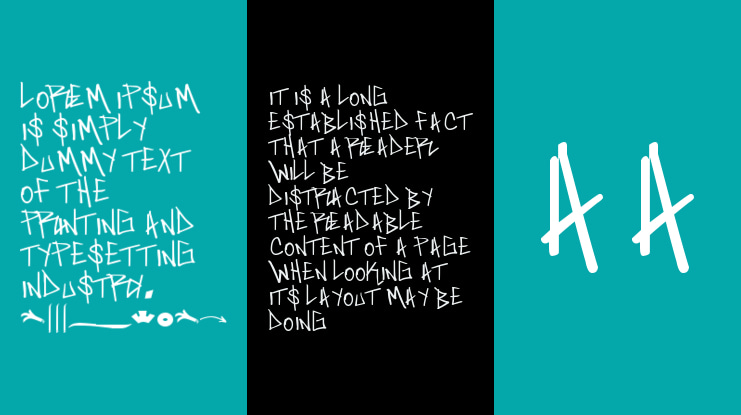 LOREM IP$UM
I$ $IMPLY
DUMMY TEXT
OF THE
PRINTING AND
TYPE$ETTING
INDU$TRY.
IT I$ A LONG
E$TABLI$HED FACT
THAT A READER
WILL BE
DI$TRACTED BY
THE READABLE
CONTENT OF A PAGE
WHEN LOOKING AT
IT$ LAYOUT MAY BE
DOING
A A